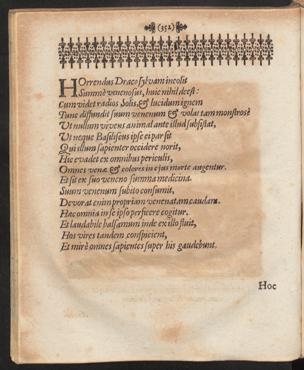 (352)
HOrrendus Draco sylvam incolis
Summè venenosus, huic nihil deest:
Cum videt radios Solis, & lucidum ignem
Tunc diffundit suum venenum & volat tam monstrosè
Ut nullum vivens animal ante illud subsistat,
Ut neque Basiliscus ipse ei par sit
Qui illum sapienter occidere norit,
Hic evadet ex omnibus periculis,
Omnes venæ & colores in ejus morte augentur.
Et sit ex suo veneno summa medicina.
Suum venenum subito consumit,
Devorat enim propriam venenatam caudam.
Hæc omnia in se ipso perficere cogitur.
Et laudabile balsamum inde ex illo fluit,
Hos vires tandem conspicient,
Et mirè omnes sapientes super his gaudebunt.
Hoc